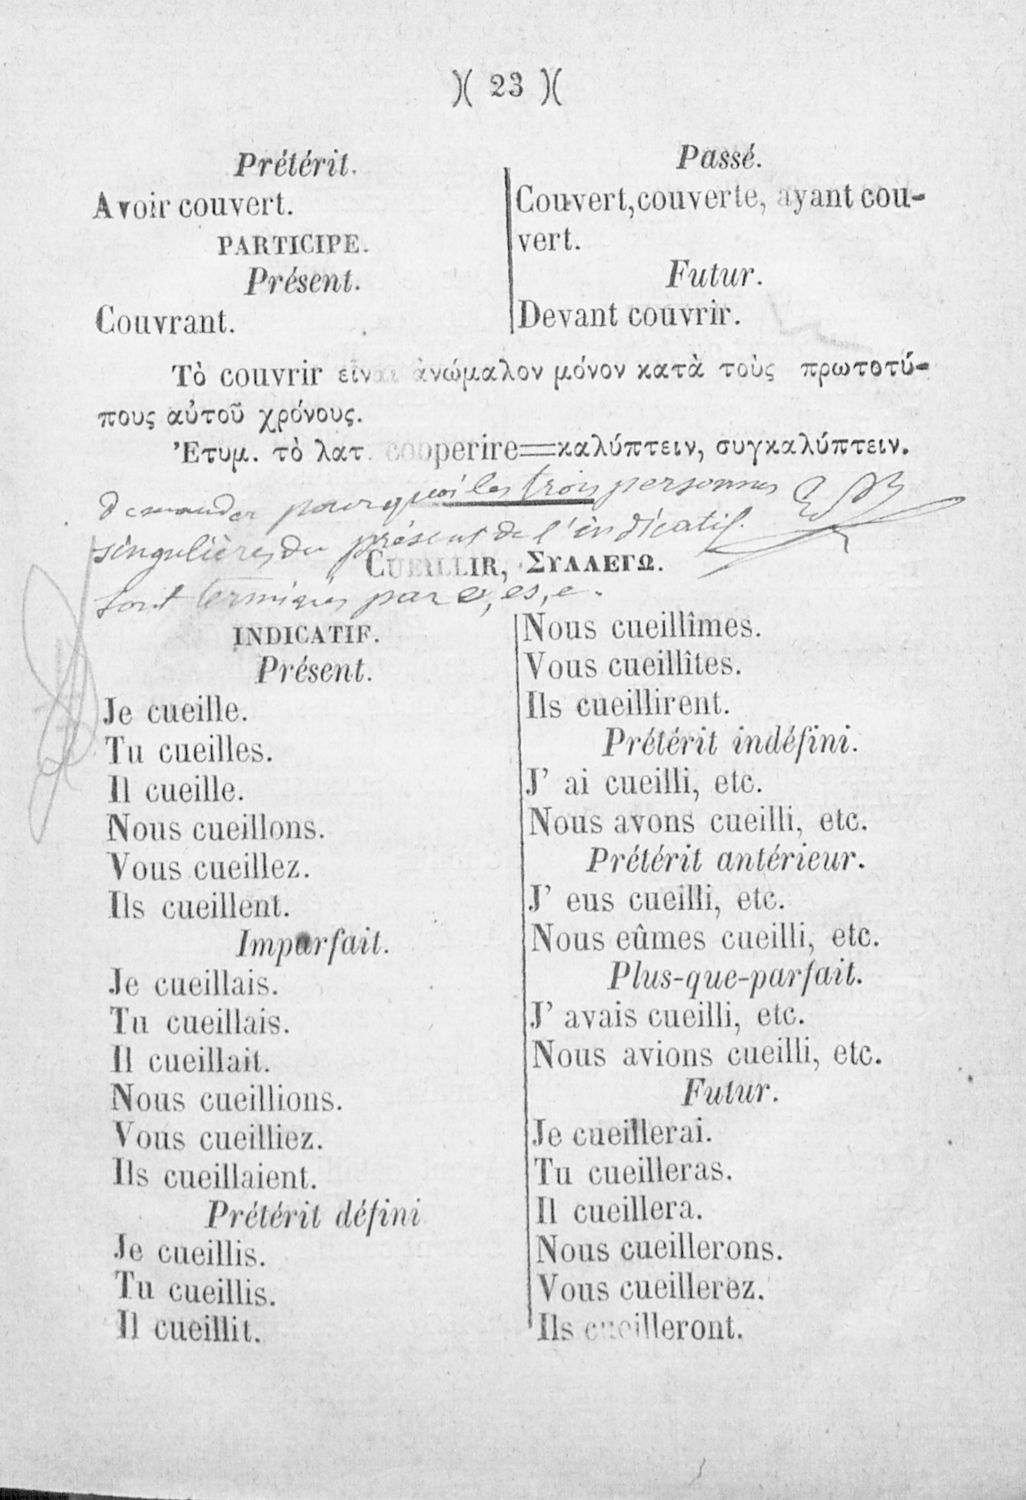 )( 23 )(
Prétérit.
Avoir couvert.
PARTICIPE.
Présent.
Couvrant.
Passé.
Couvert,couverte, ayant cou-
vert.
Futur.
Devant couvrir.
Τὸ couvrir εἶναι ἀνώμαλον μόνον κατὰ τοὺς πρωτοτύ-
πους αὐτοῦ χρόνους.
Ἐτυμ. τὸ λατ. cooperire=καλύπτειν, συγκαλύπτειν.
demander pourquoi les trois personnes
singulières du présent de l'indicatif.
CUEILLIR, ΣΥΛΛΕΓΩ.
sont terminées par e, es, e.
INDICATIF.
Présent.
Je cueille.
Tu cueilles.
Il cueille.
Nous cueillons.
Vous cueillez.
Ils cueillent.
Imparfait.
Je cueillais.
Tu cueillais.
Il cueillait.
Nous cueillions.
Vous cueilliez.
Ils cueillaient.
Prétérit défini
Je cueillis.
Tu cueillis.
Il cueillit.
Nous cueillîmes.
Vous cueillîtes.
Ils cueillirent.
Prétérit indéfini.
J' ai cueilli, etc.
Nous avons cueilli, etc.
Prétérit antérieur.
J' eus cueilli, etc.
Nous eûmes cueilli, etc.
Plus-que-parfait.
J' avais cueilli, etc.
Nous avions cueilli, etc.
Futur.
Je cueillerai.
Tu cueilleras.
Il cueillera.
Nous cueillerons.
Vous cueillerez.
Ils cueilleront.